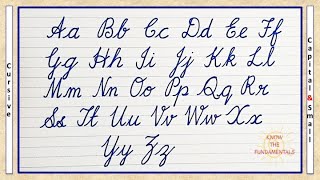 Cursive
Aa Bb Cc Dd Ee Ff
Gg Hh Ii Jj Kk Ll
Mm Nn Oo Pp Qq Rr
Ss Tt Uu Vv Ww Xx
Yy Zz
Capital & Small
KNOW
THE
FUNDAMENTALS